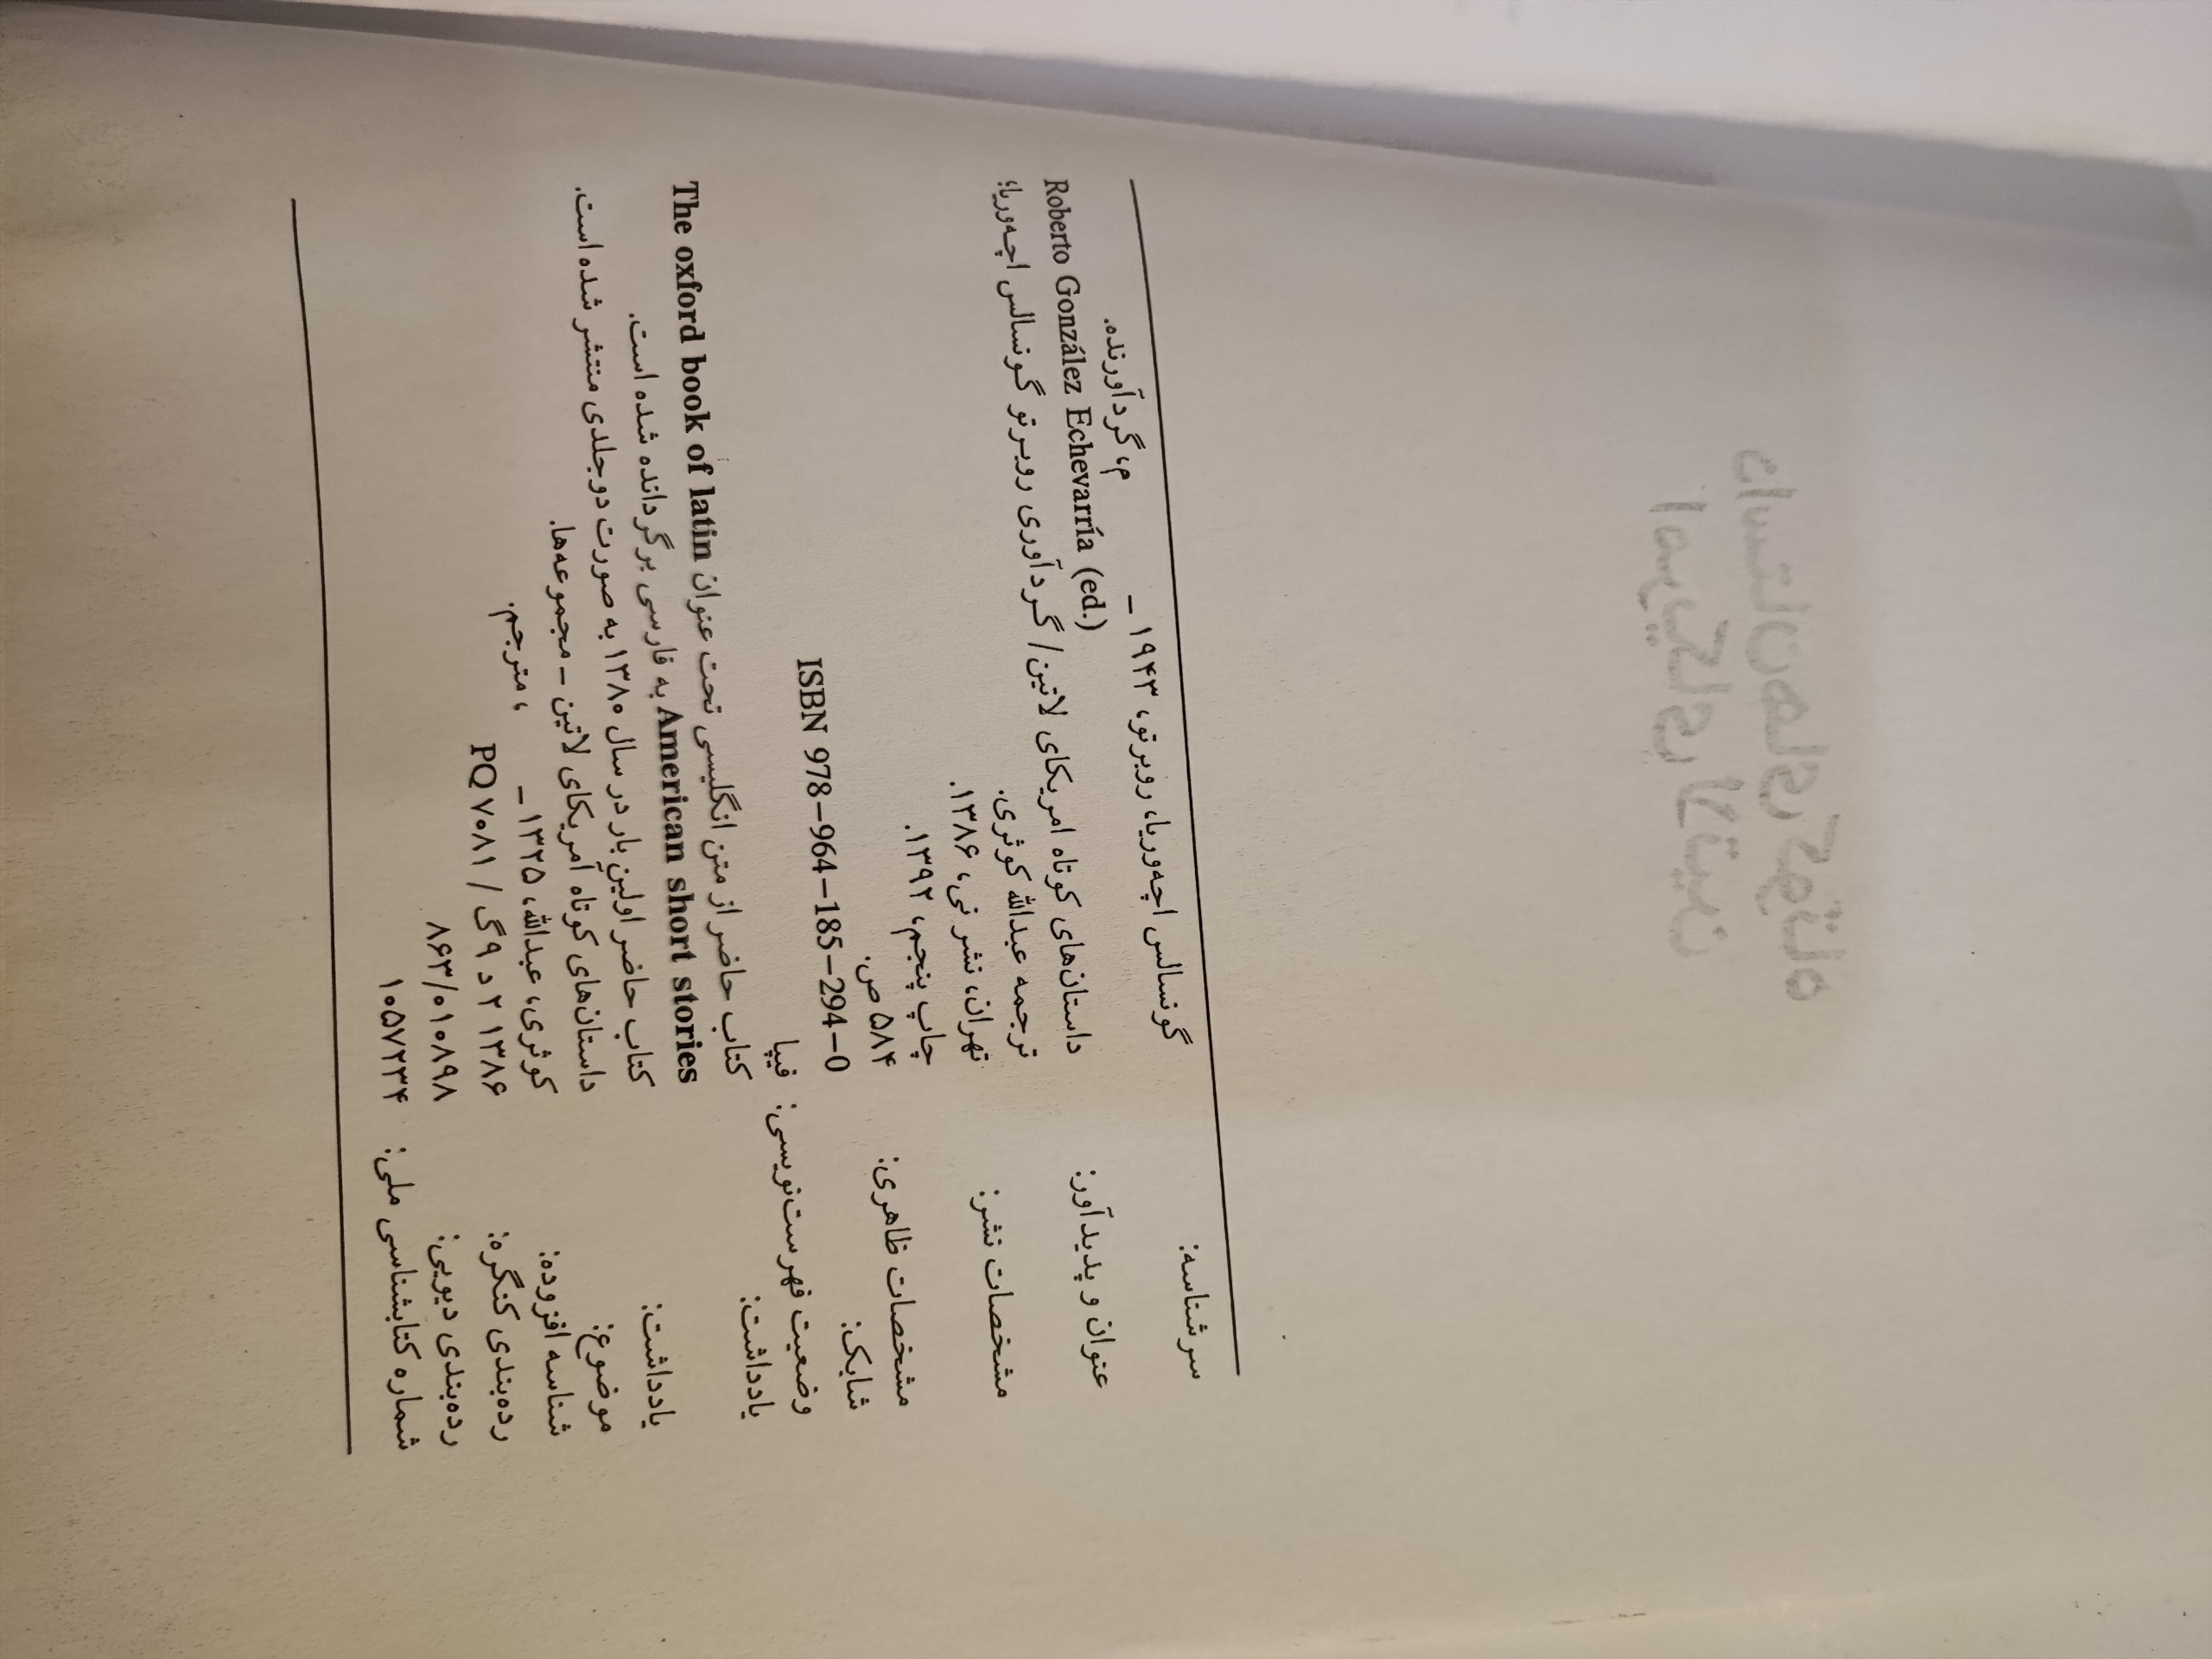 سرشناسه: گونسالس اچه‌وریا، روبرتو، ۱۹۴۳ – م، گردآورنده.
Roberto González Echevarría (ed.)
عنوان و پدیدآور: داستان‌های کوتاه امریکای لاتین/ گردآوری روبرتو گونسالس اچه‌وریا؛
ترجمه عبدالله کوثری.
مشخصات نشر: تهران، نشر نی، ۱۳۸۶.
چاپ پنجم، ۱۳۹۲.
مشخصات ظاهری: ۵۸۴ ص.
شابک: ISBN 978-964-185-294-0
وضعیت فهرست‌نویسی: فیپا
یادداشت: کتاب حاضر از متن انگلیسی تحت عنوان The oxford book of latin
American short stories به فارسی برگردانده شده است.
یادداشت: کتاب حاضر اولین بار در سال ۱۳۸۰ به صورت دوجلدی منتشر شده است.
موضوع: داستان‌های کوتاه آمریکای لاتین – مجموعه‌ها.
شناسه افزوده: کوثری، عبدالله، ۱۳۲۵ – ، مترجم.
رده‌بندی کنگره: ۱۳۸۶ ۲ د ۹ گ / PQ ۷۰۸۱
رده‌بندی دیویی: ۸۶۳/۰۱۰۸۹۸
شماره کتابشناسی ملی: ۱۰۵۷۲۳۴